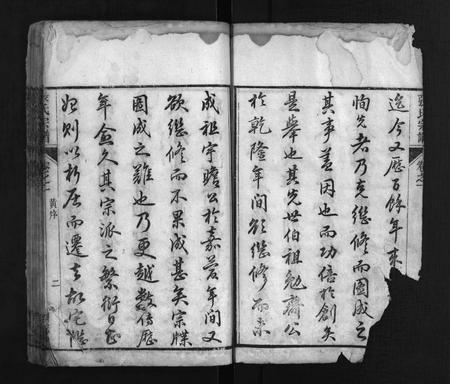 迄今又歷百餘年來
恂先者乃克繼修而圖成之
其事蓋因也而功倍於創矣
是舉也其先世伯祖勉齋公
於乾隆年間欲繼修而未
成祖宇瞻公於嘉慶年間又
欲繼修而不果成甚矣宗牒
圖成之難也乃更越數傳歷
年愈久其宗派之繁衍日
則以析居而遷
黃序
二